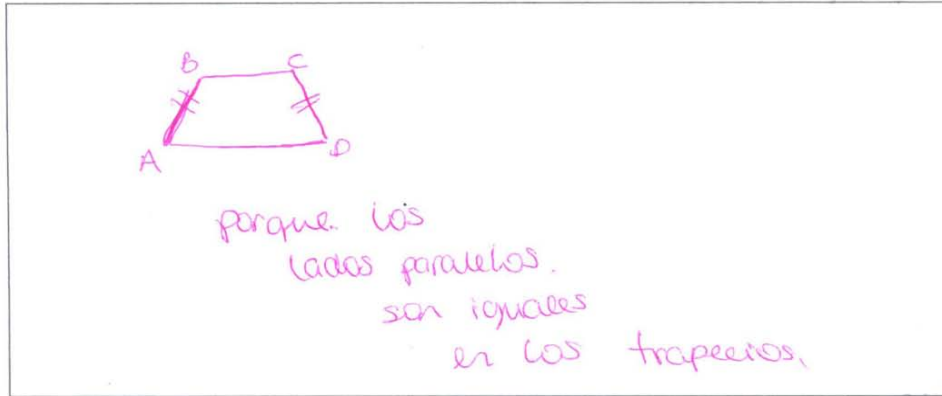 B C
A D
porque los
lados paralelos.
son iguales
en los trapecios.